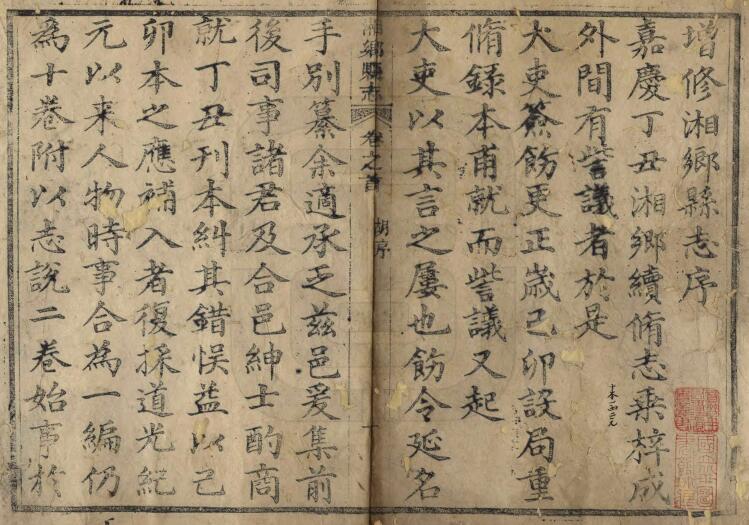 增修湘鄉縣志序
嘉慶丁丑湘鄉續脩志乘梓成
外間有訾議者於是
大吏簽飭更正歲己卯設局重
脩錄本甫就而訾議又起
大吏以其言之屢也飭令延名
湘鄉縣志
卷之首
胡序
一
手別纂余適承乏茲邑爰集前
後司事諸君及合邑紳士酌商
就丁丑刊本糾其錯悮益以己
卯本之應補入者復採道光紀
元以来人物時事合為一編仍
為十卷附以志說二卷始事於